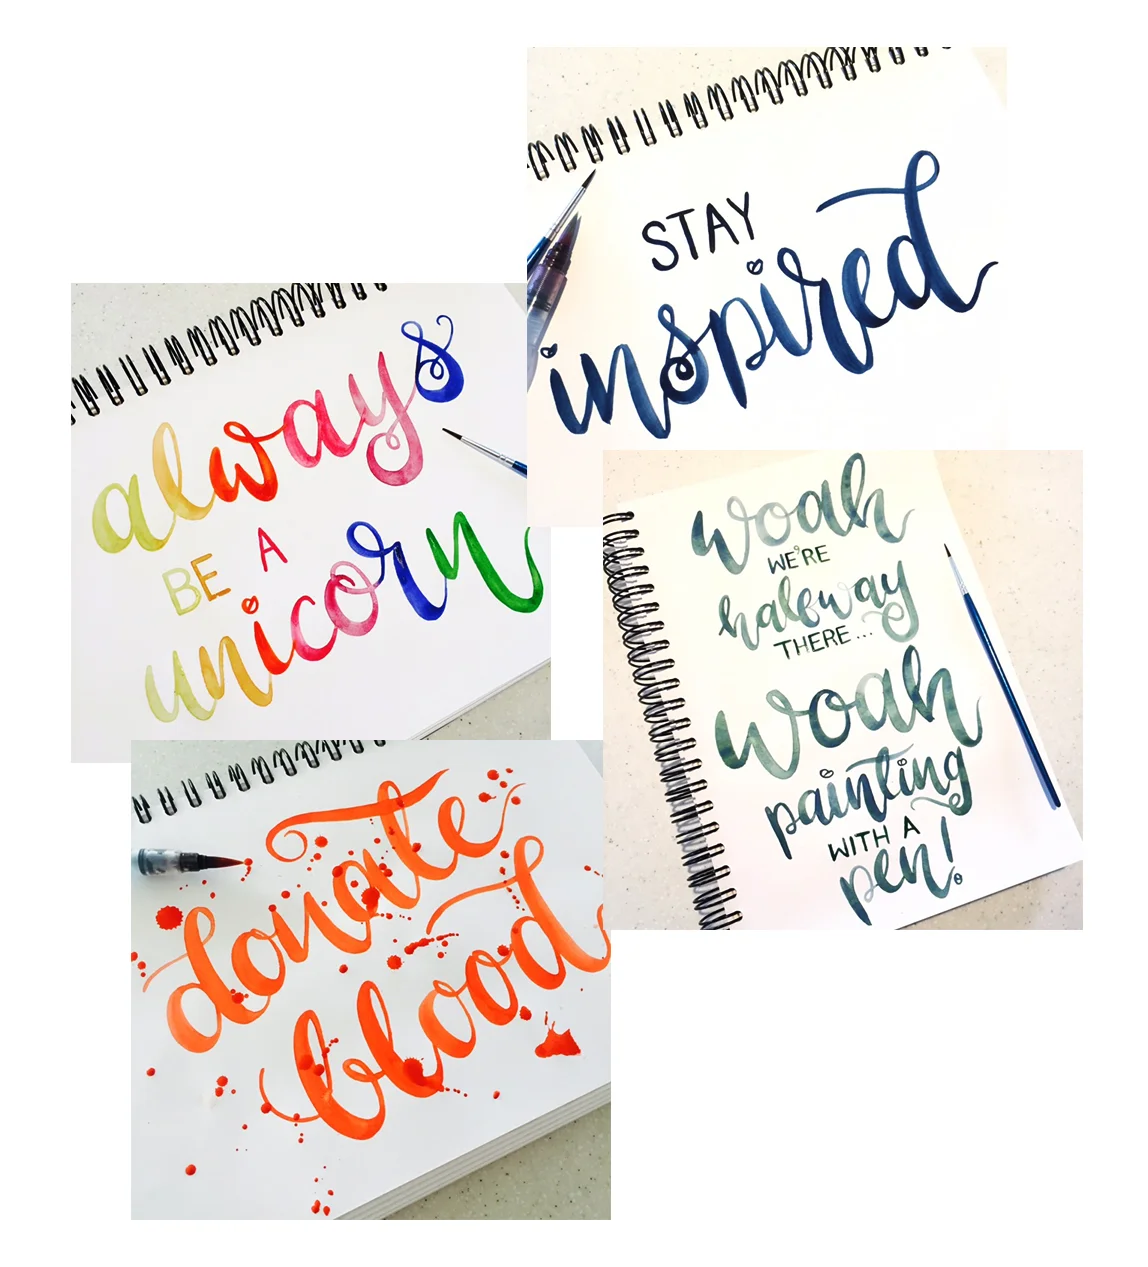 STAY
inspired
always
BE A
unicorn
woah
WE'RE
halfway
THERE...
woah
painting
WITH A
pen!
donate
blood